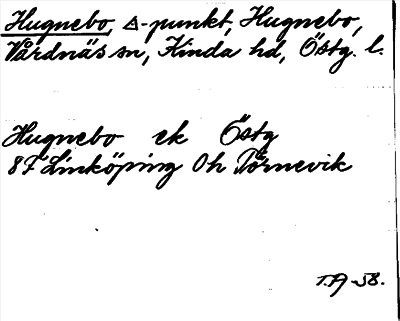 Hugnebo, △-punkt, Hugnebo,
Vårdnäs sn, Kinda hd, Östg. l.
Hugnebo ek Östg
8F Linköping 0h Törnevik
T.A -58.